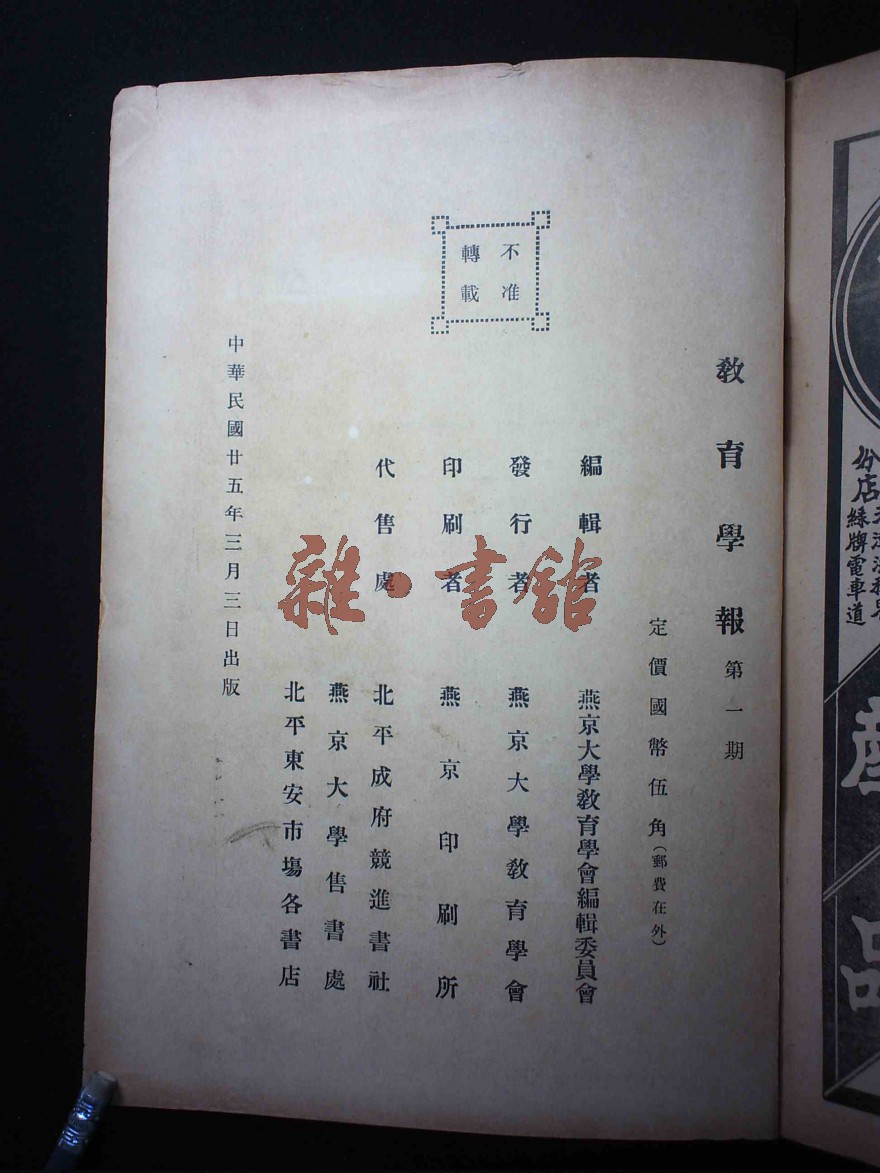 教育學報 第一期
定價國幣伍角(郵費在外)
編輯者 燕京大學教育學會編輯委員會
發行者 燕京大學教育學會
印刷者 燕京印刷所
代售處 北平成府競進書社
燕京大學售書處
北平東安市場各書店
不准
轉載
中華民國廿五年三月三日出版
雜·書館
分店
綠牌電車道
產
品